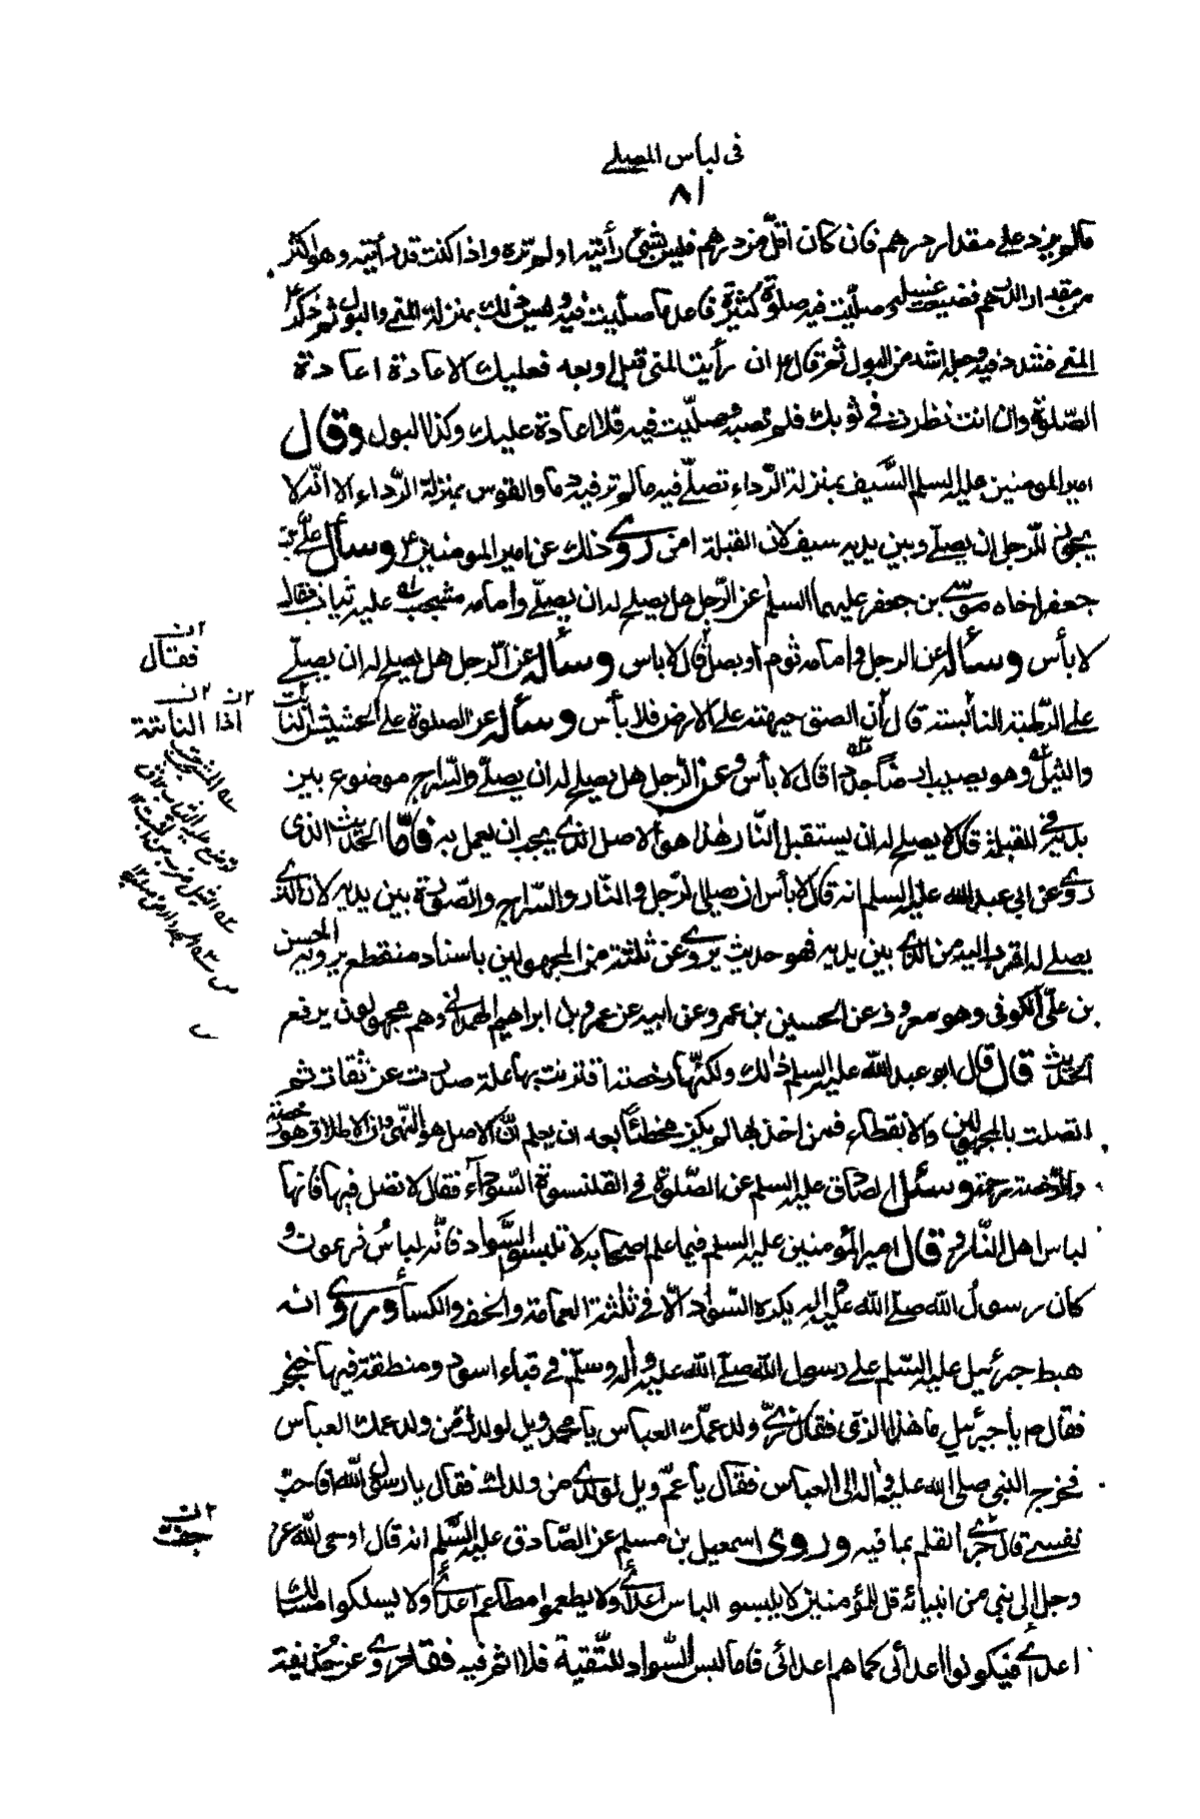 في لباس المصلي
٨١
مالم يزد على مقدار درهم فان كان اقل من درهم فليس بشئ رأيته او لم تره واذا كنت قد رأيته وهو اكثر
من مقدار الدرهم فضيعت غسله وصليت فيه صلوة كثيرة فاعد ما صليت فيه وليس ذلك بمنزلة المني والبول ثم ذكر ع
المني فشدد فيه وجعله اشد من البول ثم قال ع ان رأيت المني قبل او بعد فعليك الاعادة اعادة
الصلوة وان انت نظرت في ثوبك فلم تصبه وصليت فيه فلا اعادة عليك وكذا البول وقال
امير المومنين عليه السلم السيف بمنزلة الرداء تصلي فيه مالم تر فيه دما والقوس بمنزلة الرداء الا انه لا
يجوز للرجل ان يصلي وبين يديه سيف لان القبلة امن روى ذلك عن امير المومنين ع وسأل علي بن
جعفر اخاه موسى بن جعفر عليهما السلم عن الرجل هل يصلح له ان يصلي وامامه مشجب عليه ثياب فقال
لا بأس وسأله عن الرجل وامامه ثوم او بصل قال لا باس وسأله عن الرجل هل يصلح له ان يصلي
على الرطبة النابتة قال ان الصق جبهته على الارض فلا بأس وسأله عن الصلوة على الحشيش النابت
والثيل وهو يصيب ارضا جددا قال لا بأس وعن الرجل هل يصلح له ان يصلي والسراج موضوع بين
يديه في القبلة قال لا يصلح له ان يستقبل النار هذا هو الاصل الذي يجب ان يعمل به فاما الحديث الذي
روى عن ابي عبد الله عليه السلم انه قال لا بأس ان يصلي الرجل والنار والسراج والصورة بين يديه لان الذي
يصلي له اقرب اليه من الذي بين يديه فهو حديث يروى عن ثلثة من المجهولين باسناد منقطع يرويه الحسن
بن علي الكوفي وهو معروف عن الحسين بن عمرو عن ابيه عن عمرو بن ابراهيم الهمداني وهم مجهولون يرفع
الحديث قال قال ابو عبد الله عليه السلم ذلك ولكنها رخصة اقترنت بها علة صدرت عن ثقات ثم
اتصلت بالمجهولين والانقطاع فمن اخذ بها لم يكن مخطئا بعد ان يعلم ان الاصل هو النهي وان الاطلاق هو رخصة
والرخصة رحمة وسئل الصادق عليه السلم عن الصلوة في القلنسوة السوداء فقال لا تصل فيها فانها
لباس اهل النار وقال امير المؤمنين عليه السلم فيما علم اصحابه لا تلبسوا السواد فانه لباس فرعون و
كان رسول الله صلى الله عليه واله يكره السواد الا في ثلثة العمامة والخف والكساء وروى انه
هبط جبرئيل عليه السلم على رسول الله صلى الله عليه واله وسلم في قباء اسود ومنطقة فيها خنجر
فقال ص يا جبرئيل ما هذا الذي فقال زي ولد عمك العباس يا محمد ويل لولدك من ولد عمك العباس
فخرج النبي صلى الله عليه واله الى العباس فقال يا عم ويل لولدي من ولدك فقال يا رسول الله افاجب
نفسي قال جرى القلم بما فيه وروى اسمعيل بن مسلم عن الصادق عليه السلم انه قال اوحى الله عز
وجل الى نبي من انبيائه قل للمؤمنين لا يلبسوا لباس اعدائي ولا يطعموا مطاعم اعدائي ولا يسلكوا مسالك
اعدائي فيكونوا اعدائي كما هم اعدائي فاما لبس السواد للتقية فلا اثم فيه فقد روى عن حذيفة
فقال
اذا النابتة
جفت